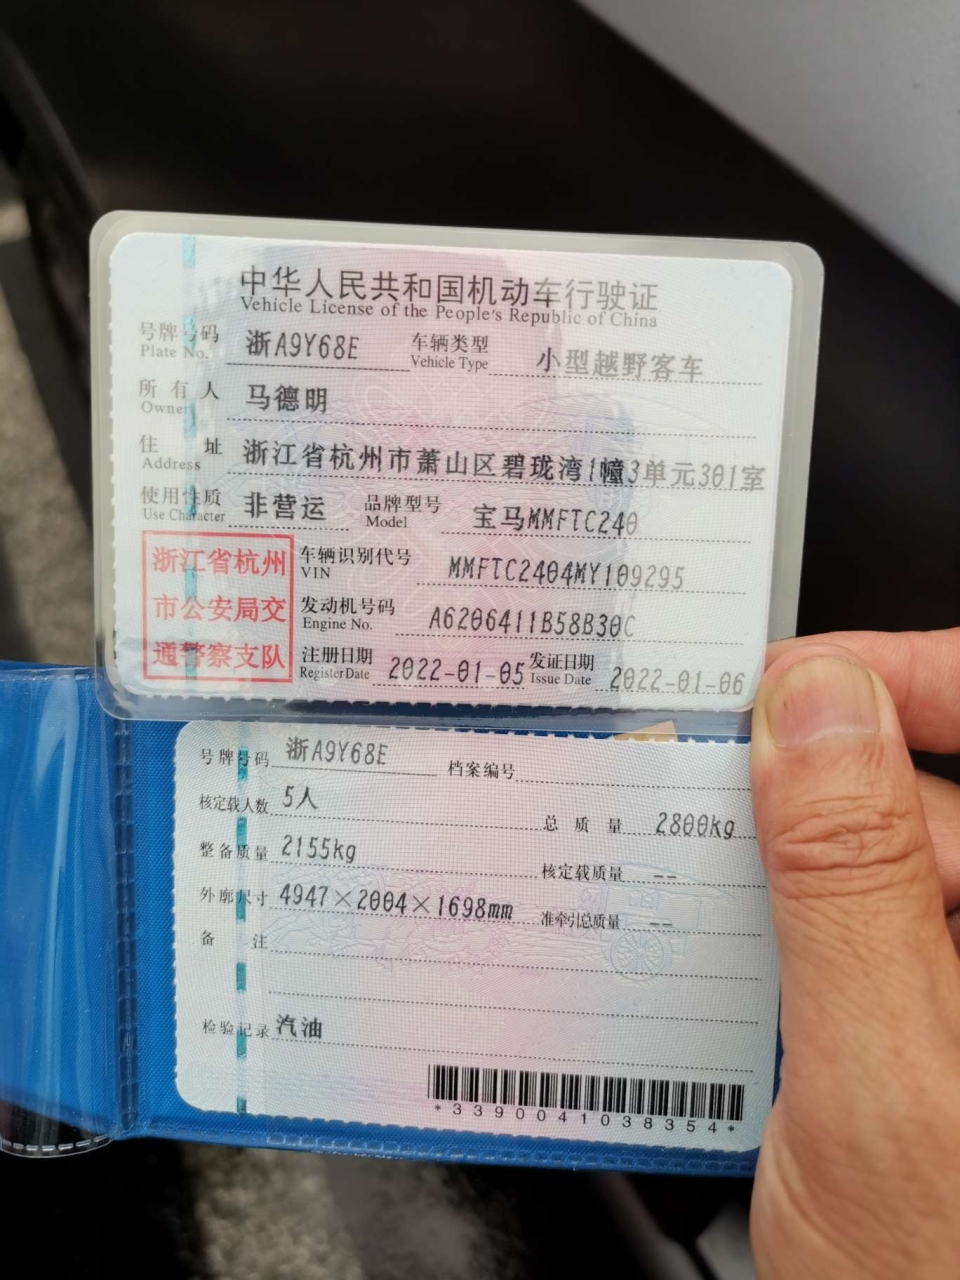 中华人民共和国机动车行驶证
Vehicle License of the People's Republic of China
号牌号码 浙A9Y68E 车辆类型 小型越野客车
Plate No. Vehicle Type
所有人 马德明
Owner
住址 浙江省杭州市萧山区碧珑湾1幢3单元301室
Address
使用性质 非营运 品牌型号 宝马MMFTC240
Use Character Model
浙江省杭州
市公安局交
通警察支队
车辆识别代号 MMFTC2404MY109295
VIN
发动机号码 A6206411B58B30C
Engine No.
注册日期 2022-01-05 发证日期 2022-01-06
Register Date Issue Date
号牌号码 浙A9Y68E 档案编号
核定载人数 5人 总质量 2800kg
整备质量 2155kg 核定载质量 --
外廓尺寸 4947×2004×1698mm 准牵引总质量 --
备注
检验记录 汽油
*3390041038354*